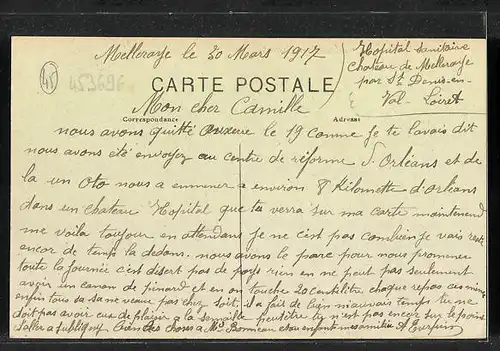 Melleraye le 30 Mars 1917
Hopital Sanitaire
Chateau de Melleraye
par St Denis-en-
Val - Loiret
45
CARTE POSTALE
Mon cher Camille
Correspondance
Adresse
nous avons quitté auxerre le 19 comme je te lavais dit
nous avons été envoyez au centre de réforme d'Orléans et de
la un Oto nous a emmener a environ 8 Kilomette d'orleans
dans un chateau Hopital que tu verra sur ma carte maintenend
me voila toujour en attendans je ne c'est pas combien je vais reste
encor de temps la dedans. nous avons le parc pour nous promener
toute la journée c'est désert pas de pays rien en ne peut pas seulement
avoir un canon de pinard et en en touche 20 centilitre chaque repas ces mince
enfin tous sa sane veaux pas chez soit. il a fait de bien mauvais temps tu ne
doit pas avoir eus de plaisir a la semaille peutêtre tu n'est pas encor sur le point
d'aller a Subligny bien des chose a Md Bonneau